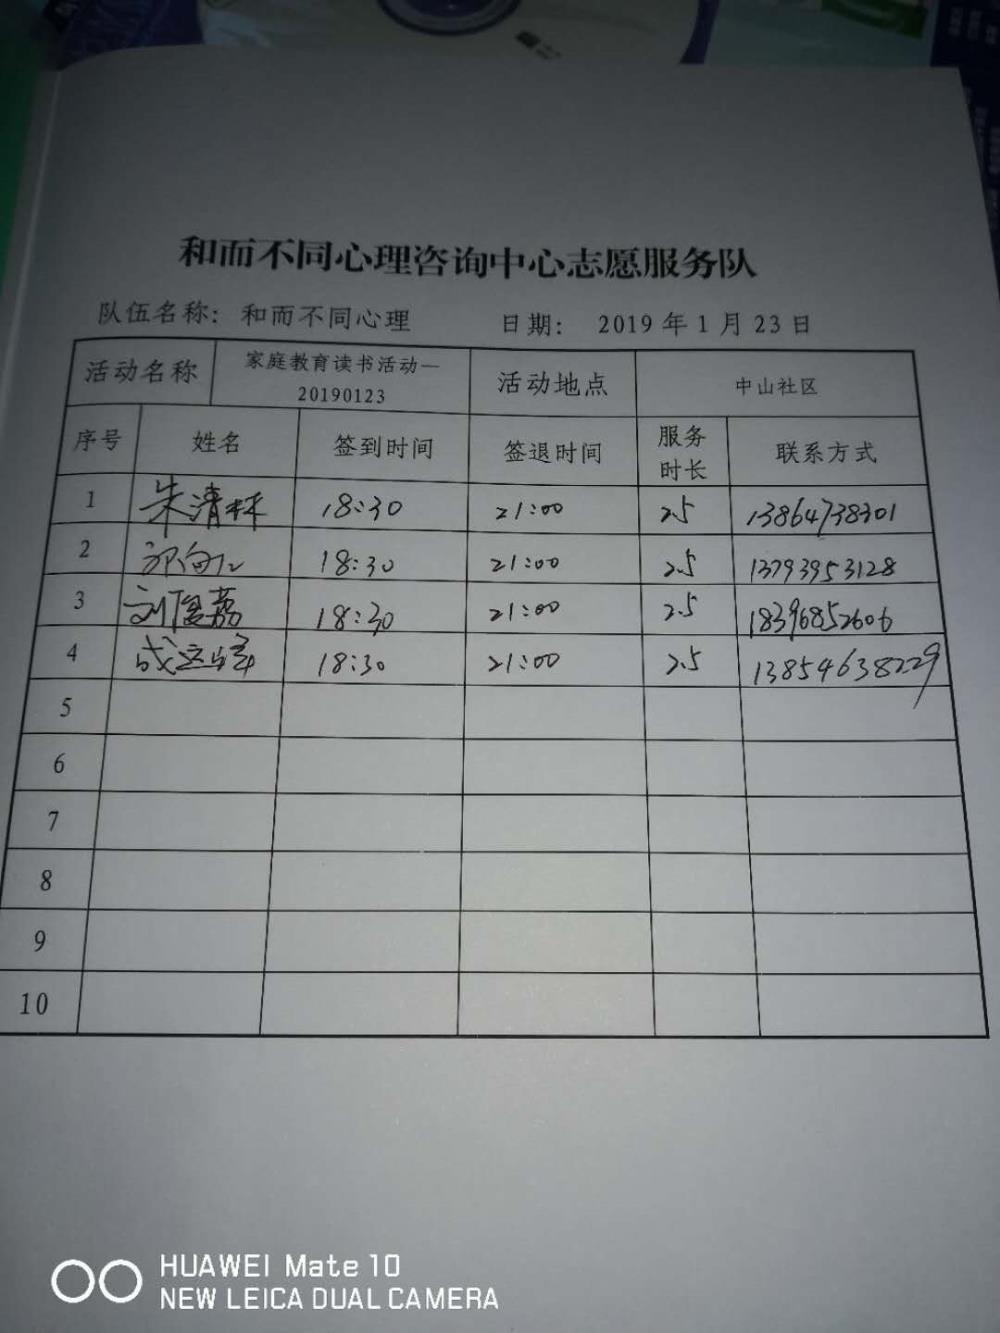 和而不同心理咨询中心志愿服务队
队伍名称: 和而不同心理 日期: 2019年1月23日
活动名称 家庭教育读书活动—20190123 活动地点 中山社区
序号 姓名 签到时间 签退时间 服务时长 联系方式
1 朱清林 18:30 21:00 2.5 13864738301
2 18:30 21:00 2.5 13793953128
3 刘俊荔 18:30 21:00 2.5 18396852606
4 成 18:30 21:00 2.5 13854638229
5
6
7
8
9
10
HUAWEI Mate 10
NEW LEICA DUAL CAMERA